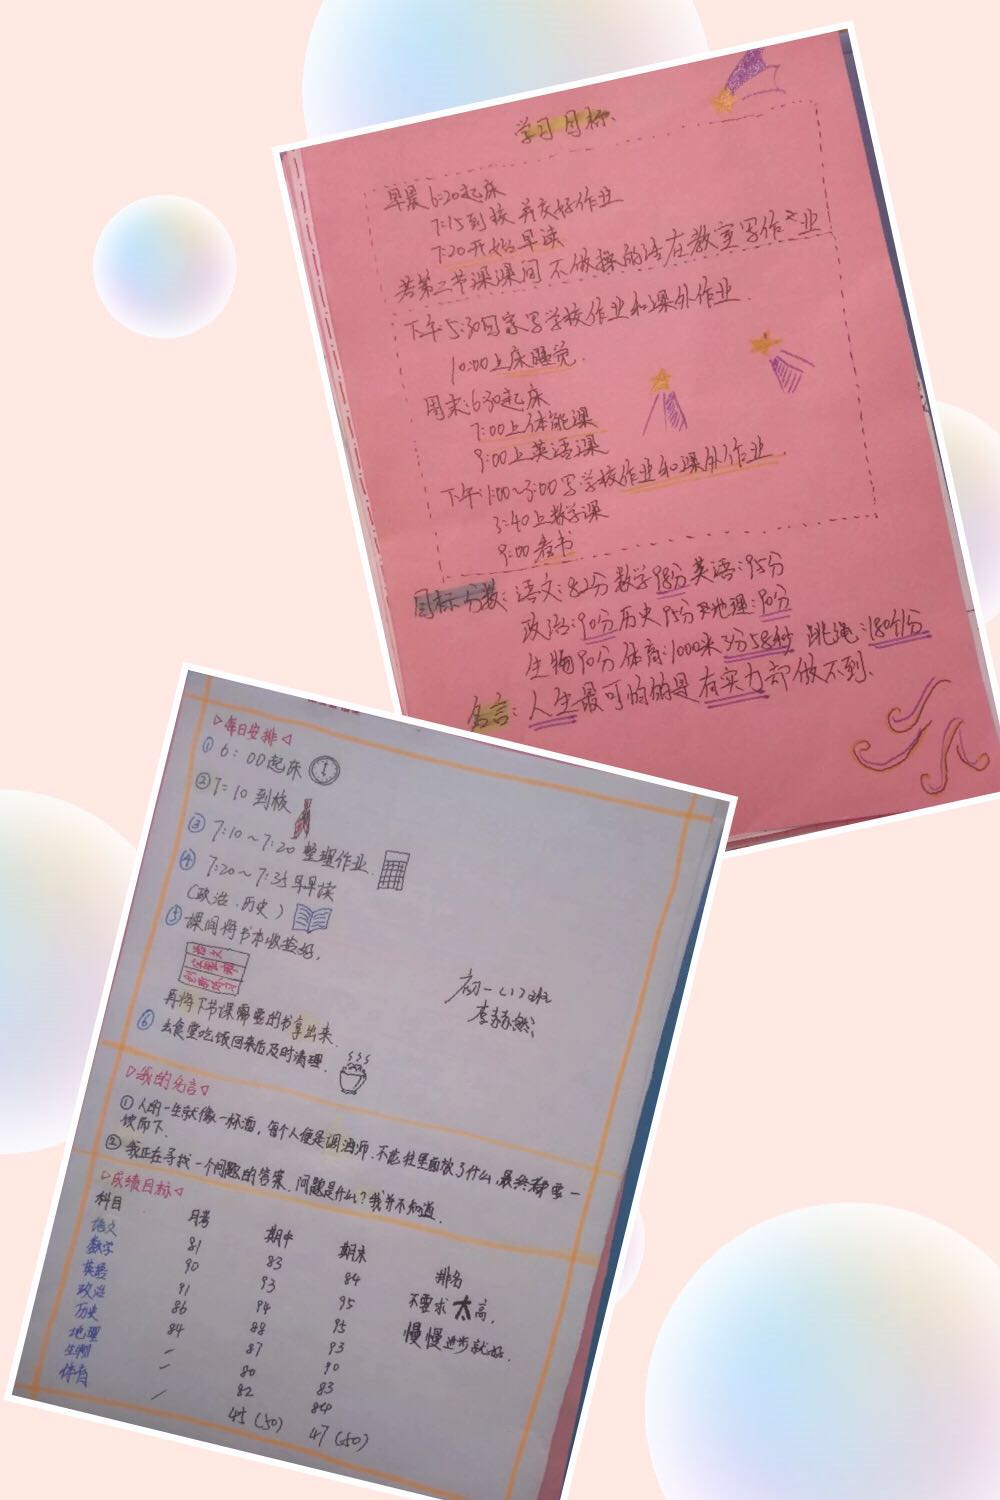 学习目标
早晨6:20起床
7:15到校并交好作业
7:20开始早读
若第二节课课间不做操的话在教室写作业
下午:5:30回家写学校作业和课外作业.
10:00上床睡觉.
周末:6:30起床
7:00上体能课
9:00上英语课
下午:1:00~3:00写学校作业和课外作业.
3:40上数学课
9:00看书
目标分数:语文:82分 数学98分 英语:95分
政治:90分 历史95分 地理:90分
生物90分 体育:1000米3分58秒 跳绳:180个/分
名言:人生最可怕的是有实力却做不到.
▷每日安排◁
① 6:00起床
② 7:10到校
③ 7:10~7:20 整理作业.
④ 7:20~7:35早早读
(政治.历史)
⑤ 课间将书本收拾好,
语文
再将下节课需要的书拿出来.
⑥ 去食堂吃饭回来后及时清理.
初一(1)班
▷我的名言◁
① 人的一生就像一杯酒,每个人便是调酒师.不论往里面放了什么,最终都要一
饮而下.
② 我正在寻找一个问题的答案.问题是什么?我并不知道.
▷成绩目标◁
科目 月考 期中 期末 排名
语文 81 83 84 不要求太高,
数学 90 93 95 慢慢进步就好.
英语 91 94 95
政治 86 88 93
历史 84 87 90
地理 / 80 83
生物 / 82 84
体育 / 45(50) 47(50)